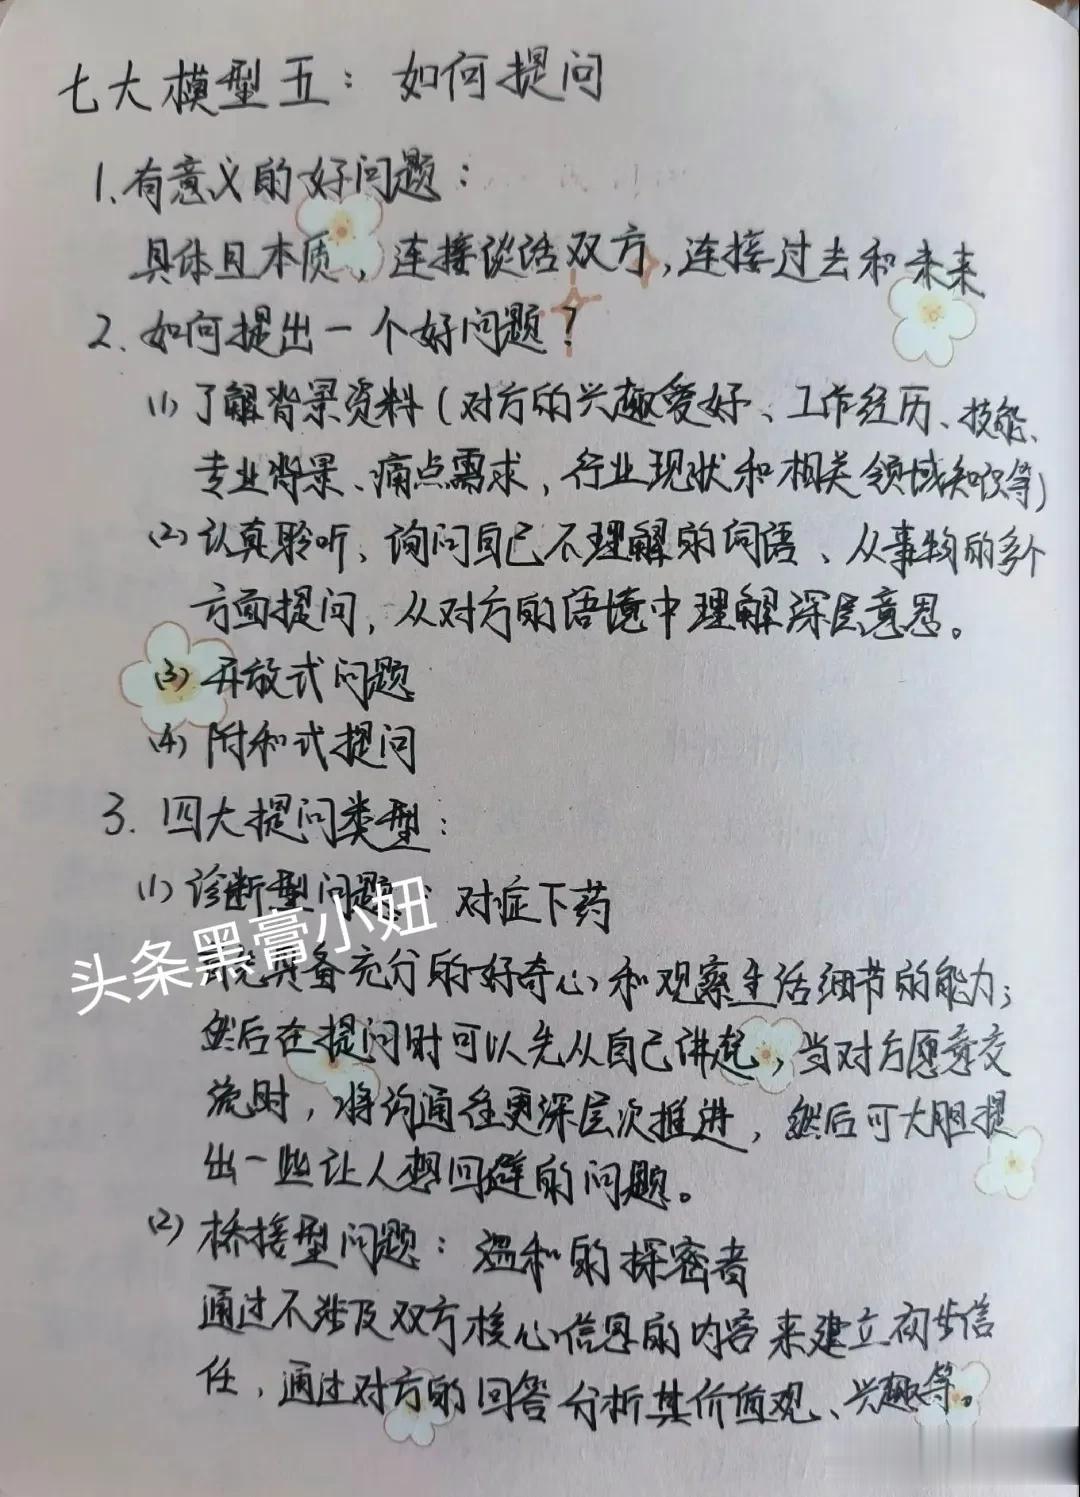 七大模型五：如何提问
1、有意义的好问题：
具体且本质，连接谈话双方，连接过去和未来
2．如何提出一个好问题？
(1)了解背景资料(对方的兴趣爱好、工作经历、技能、
专业背景、痛点需求，行业现状和相关领域知识等)
(2)认真聆听、询问自己不理解的词语、从事物的多个
方面提问，从对方的语境中理解深层意思。
(3)开放式问题
(4)附和式提问
3．四大提问类型：
(1)诊断型问题：对症下药
头条黑膏小妞
具备充分的好奇心和观察生活细节的能力；
然后在提问时可以先从自己讲起，当对方愿意交
流时，将沟通往更深层次推进，然后可大胆提
出一些让人想回避的问题。
(2)桥接型问题：温和的探密者
通过不涉及双方核心信息的内容来建立初步信
任，通过对方的回答分析其价值观、兴趣等。